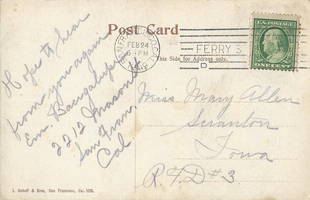 Post Card
SAN FRANCISCO, CAL.
FEB 24
6 - PM
FERRY S
U.S. POSTAGE
ONE CENT
This Side for Address only.
D
Hope to hear
from you again
Em.
2212 Mason St
San Fran.
Cal
Miss Mary Allen
Scranton
Iowa
R.F.D #3.
San Francisco, Ca.